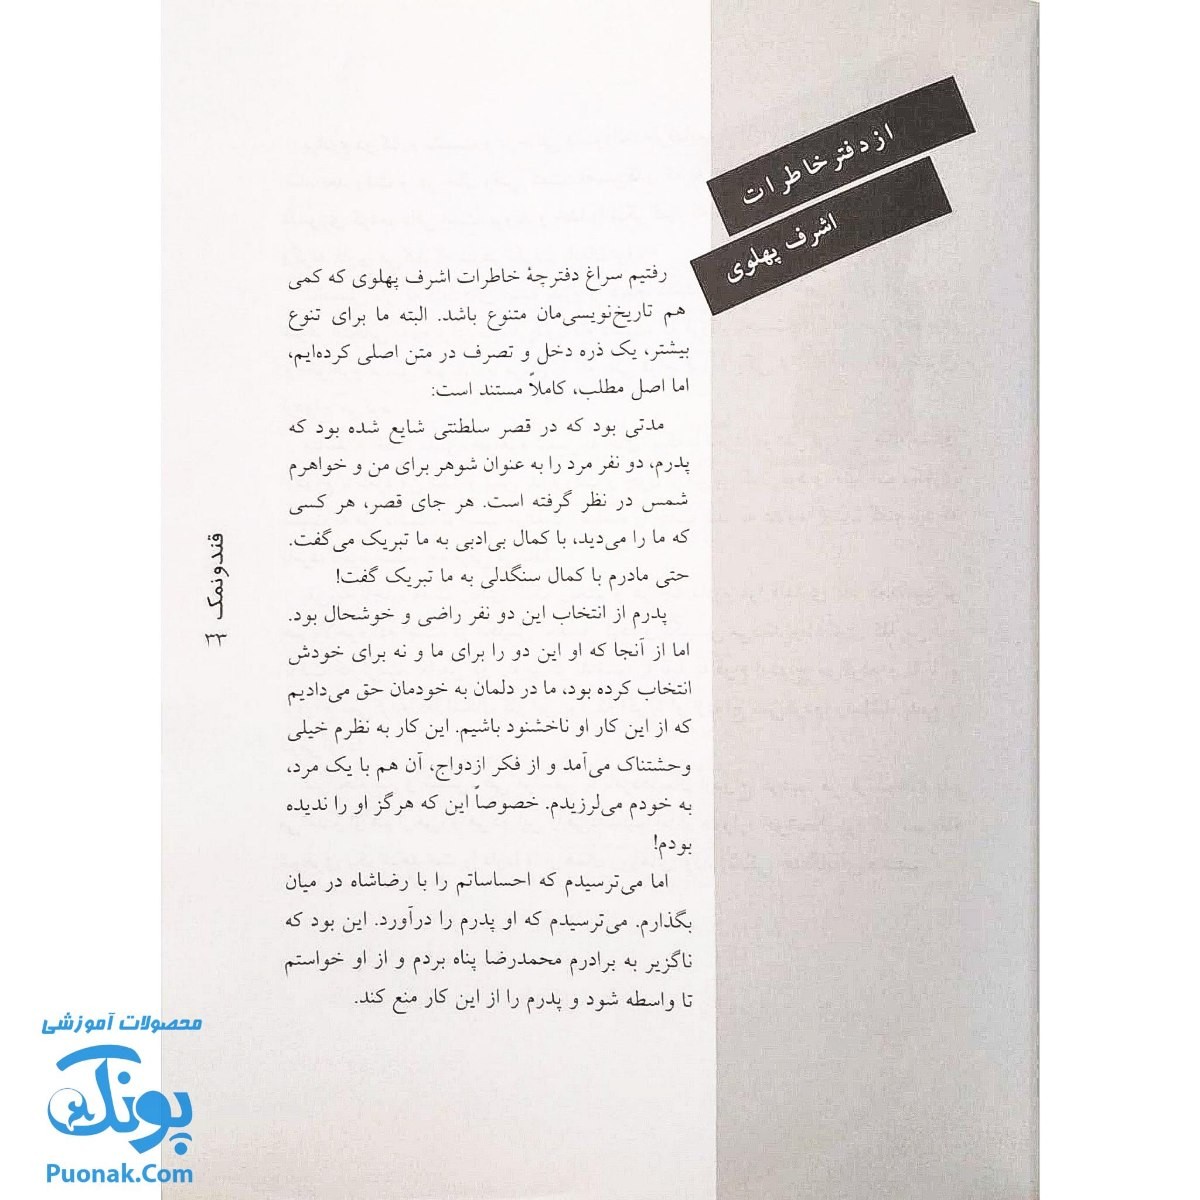 از دفتر خاطرات
اشرف پهلوی
رفتیم سراغ دفترچهٔ خاطرات اشرف پهلوی که کمی
هم تاریخ‌نویسی‌مان متنوع باشد. البته ما برای تنوع
بیشتر، یک ذره دخل و تصرف در متن اصلی کرده‌ایم،
اما اصل مطلب، کاملاً مستند است:
مدتی بود که در قصر سلطنتی شایع شده بود که
پدرم، دو نفر مرد را به عنوان شوهر برای من و خواهرم
شمس در نظر گرفته است. هر جای قصر، هر کسی
که ما را می‌دید، با کمال بی‌ادبی به ما تبریک می‌گفت.
حتی مادرم با کمال سنگدلی به ما تبریک گفت!
پدرم از انتخاب این دو نفر راضی و خوشحال بود.
اما از آنجا که او این دو را برای ما و نه برای خودش
انتخاب کرده بود، ما در دلمان به خودمان حق می‌دادیم
که از این کار او ناخشنود باشیم. این کار به نظرم خیلی
وحشتناک می‌آمد و از فکر ازدواج، آن هم با یک مرد،
به خودم می‌لرزیدم. خصوصاً این که هرگز او را ندیده
بودم!
اما می‌ترسیدم که احساساتم را با رضاشاه در میان
بگذارم. می‌ترسیدم که او پدرم را درآورد. این بود که
ناگزیر به برادرم محمدرضا پناه بردم و از او خواستم
تا واسطه شود و پدرم را از این کار منع کند.
قندونمک
۳۳
محصولات آموزشی
پونک
Puonak.Com